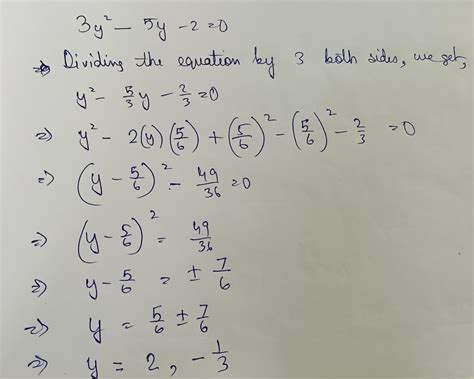 3y² - 5y - 2 = 0
⇒ Dividing the equation by 3 both sides, we get,
y² - 5/3 y - 2/3 = 0
⇒ y² - 2(y)(5/6) + (5/6)² - (5/6)² - 2/3 = 0
⇒ (y - 5/6)² - 49/36 = 0
⇒ (y - 5/6)² = 49/36
⇒ y - 5/6 = ± 7/6
⇒ y = 5/6 ± 7/6
⇒ y = 2, -1/3